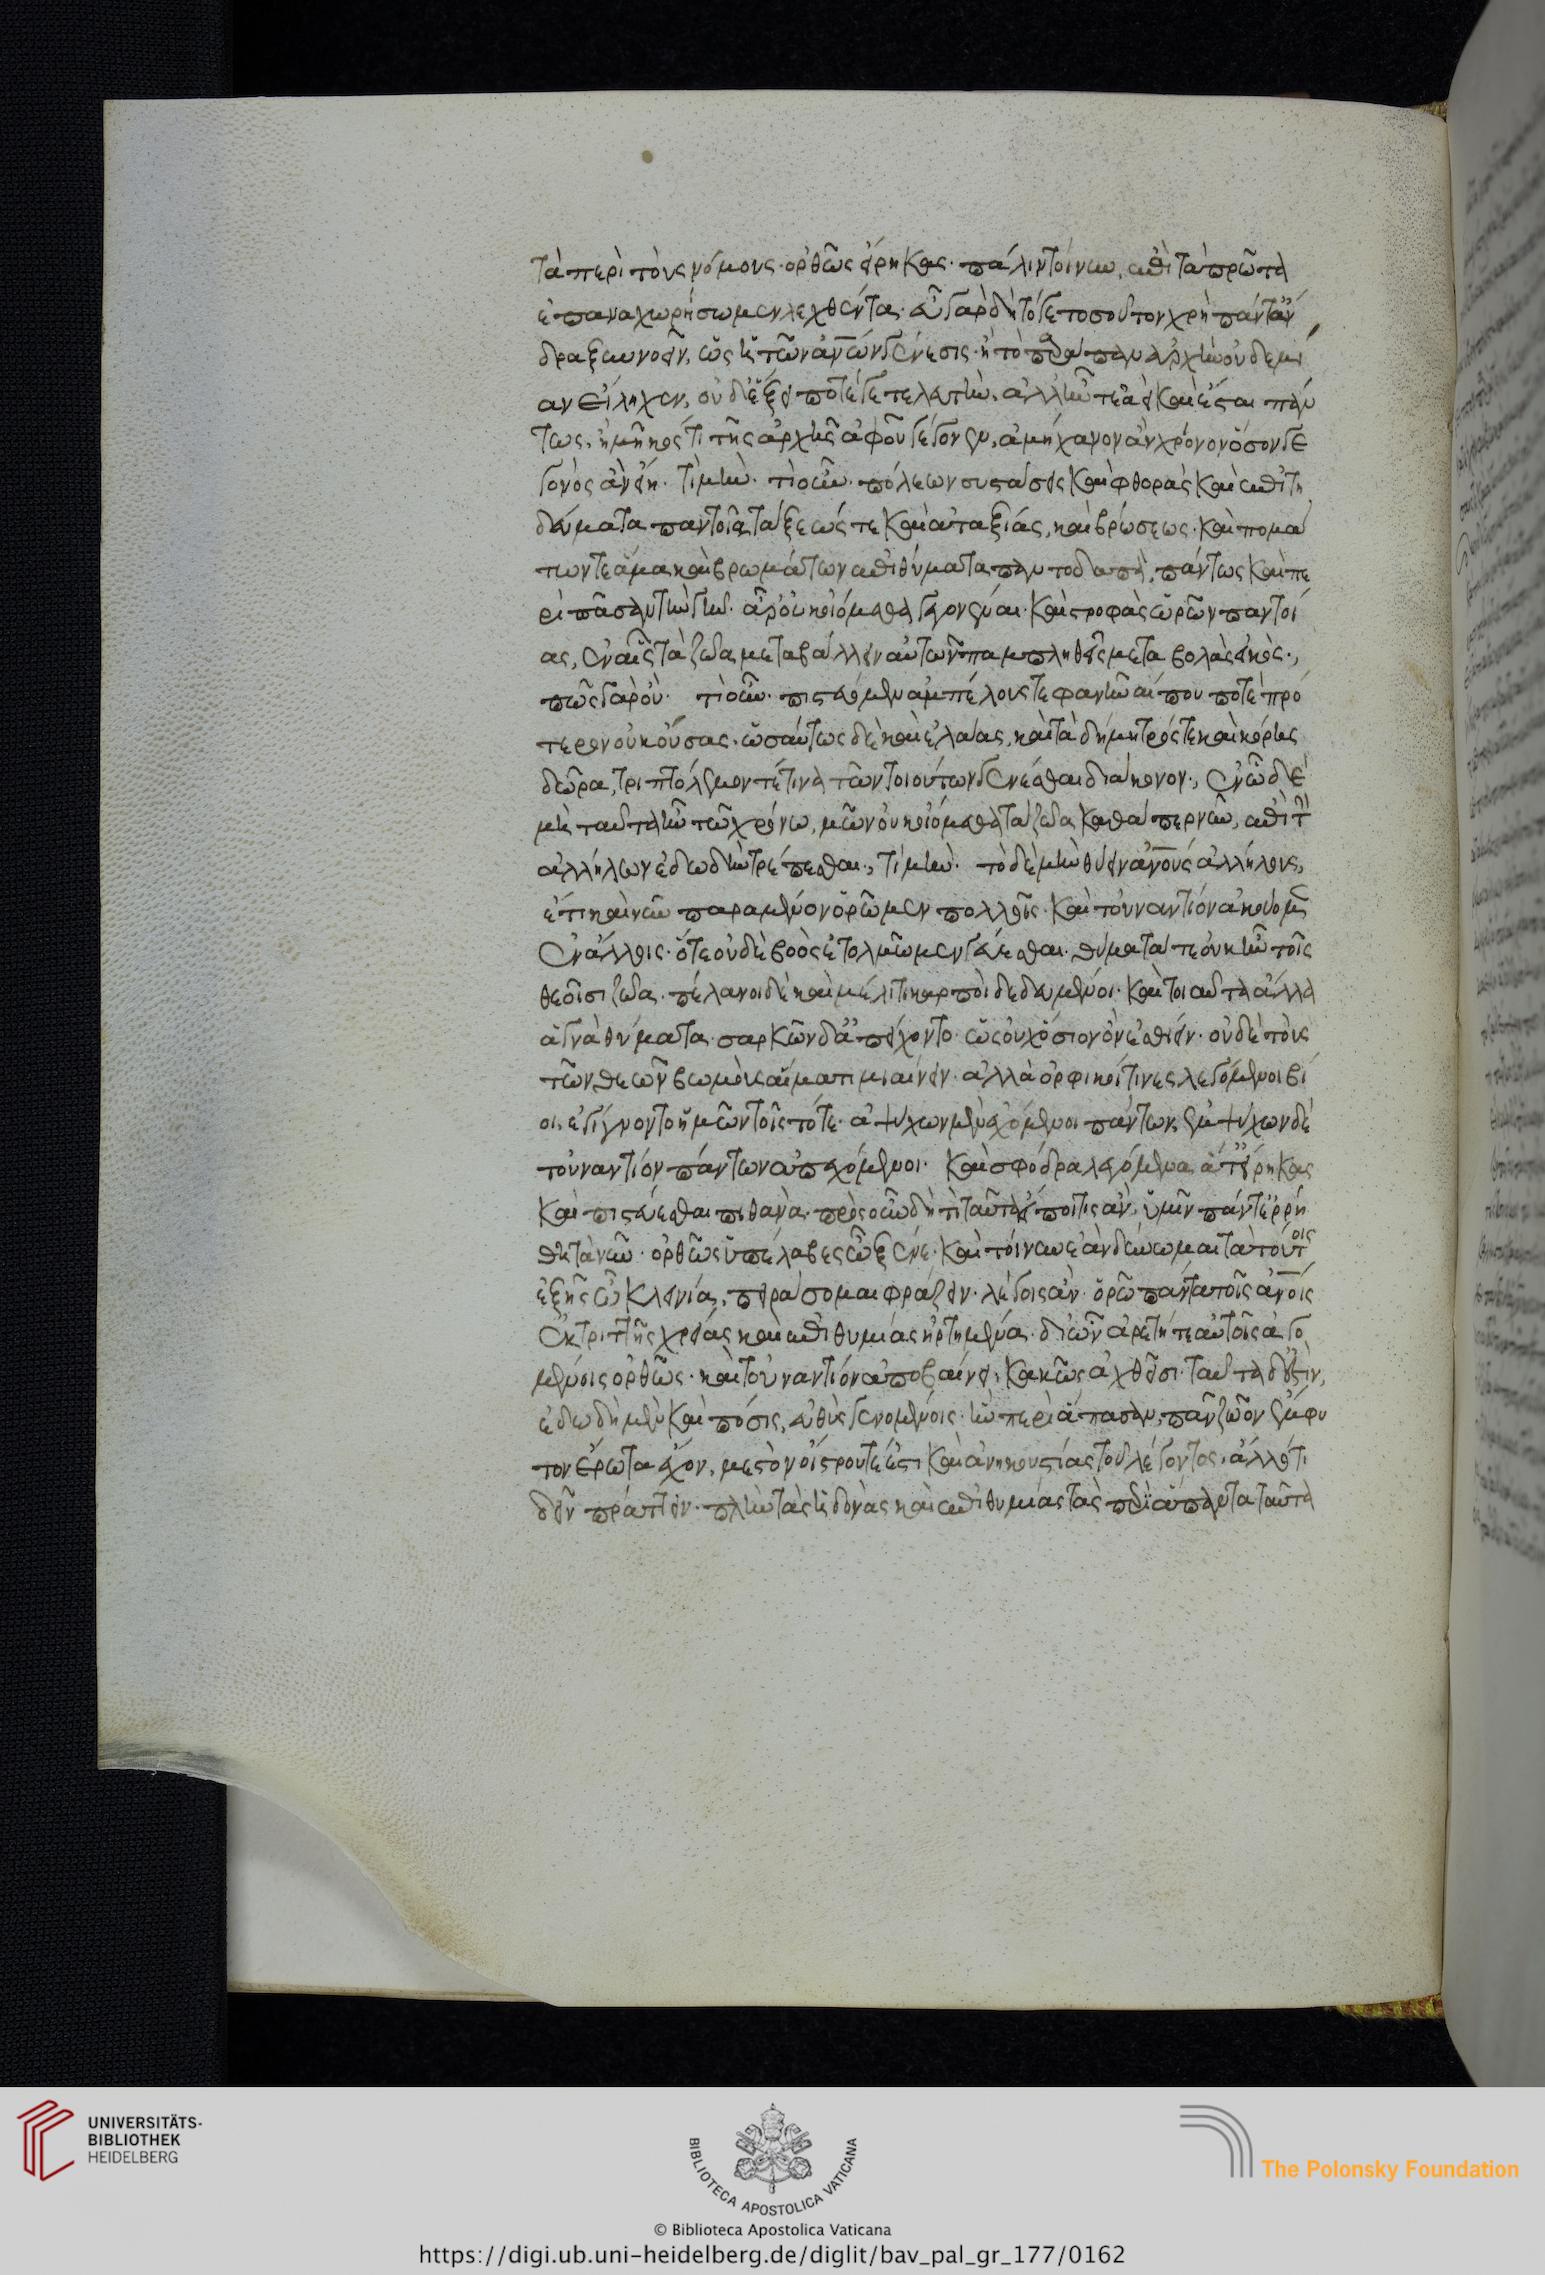 τὰ περὶ τοὺς νόμους· ὀρθῶς εἴρηκας· πάλιν τοίνυν, ἐπὶ τὰ πρῶτα
ἐπαναχωρήσωμεν λεχθέντα· εὖ γὰρ δὴ τό γε τοσοῦτον χρὴ πάντ' ἄν
δρα ξυννοεῖν, ὡς ἡ τῶν ἀνων γένεσις· ἢ τὸ παράπαν ἀρχὴν οὐδεμί
αν εἴληχεν, οὐδ' ἕξει ποτέ γε τελευτὴν, ἀλλ' ἦν τε ἀεὶ καὶ ἔσται πάν
τως, ἢ μῆκός τι τῆς ἀρχῆς ἀφ' οὗ γέγονεν, ἀμήχανον ἂν χρόνον ὅσον γε
γονὸς ἂν εἴη· τί μήν· τί οὖν· πόλεων συστάσεις καὶ φθορὰς καὶ ἐπιτη
δεύματα παντοῖα τάξεώς τε καὶ ἀταξίας, καὶ βρώσεως· καὶ πομά
των τε ἅμα καὶ βρωμάτων ἐπιθύματα παντοδαπὰ, πάντως καὶ πε
ρὶ πᾶσαν τὴν γῆν· ἆρ' οὐκ οἰόμεθα γεγονέναι· καὶ στροφὰς ὡρῶν παντοί
ας, ἐν αἷς τὰ ζῶα μεταβάλλειν αὐτῶν παμπληθεῖς μεταβολὰς εἰκός·,
πῶς γὰρ οὔ· τί οὖν· πιστεύομεν ἀμπέλους τε φανῆναί που ποτὲ πρό
τερον οὐκ οὔσας· ὡσαύτως δὲ καὶ ἐλαίας, καὶ τὰ δήμητρός τε καὶ κόρης
δῶρα, τριπτόλεμον τέ τινα τῶν τοιούτων γενέσθαι διάκονον·, ἐν ᾧ δὲ
μὴ ταῦτα ἦν τῷ χρόνω, μῶν οὐκ οἰόμεθα τὰ ζῶα καθάπερ νῦν, ἐπὶ τὴν
ἀλλήλων ἐδωδὴν τρέπεσθαι·, τί μήν· τὸ δὲ μὴν θύειν ἀνους ἀλλήλους,
ἔτι καὶ νῦν παραμένον ὁρῶμεν πολλοῖς· καὶ τοὐναντίον ἀκούομεν
ἐν ἄλλοις· ὅτε οὐδὲ βοὸς ἐτολμῶμεν γεύεσθαι· θύματά τε οὐκ ἦν τοῖς
θεοῖσι ζῶα· πέλανοι δὲ καὶ μέλιτι καρποὶ δεδευμένοι· καὶ τοιαῦτα ἄλλα
ἁγνὰ θύματα· σαρκῶν δ' ἀπείχοντο· ὡς οὐχ ὅσιον ὂν ἐσθίειν· οὐδὲ τοὺς
τῶν θεῶν βωμοὺς αἵματι μιαίνειν· ἀλλὰ ὀρφικοί τινες λεγόμενοι βί
οι ἐγίγνοντο ἡμῶν τοῖς τότε· ἀψύχων μὲν ἐχόμενοι πάντων, ἐμψύχων δὲ
τοὐναντίον πάντων ἀπεχόμενοι· καὶ σφόδρα λεγόμενα, ἅ τ' εἴρηκας
καὶ πιστεύεσθαι πιθανά· πρὸς οὖν δὴ τί ταῦτα εἴποι τις ἂν, ὑμῖν πάντ' ἐρρή
θη τανῦν· ὀρθῶς ὑπέλαβες ὦ ξένε· καὶ τοίνυν ἐὰν δύνωμαι τὰ τούτοις
ἑξῆς ὦ κλεινία, πειράσομαι φράζειν· λέγοις ἄν· ὁρῶ πάντα τοῖς ἀνοις
ἐκ τριττῆς χρείας καὶ ἐπιθυμίας ἠρτημένα· δι' ὧν ἀρετή τε αὐτοῖς ἀγο
μένοις ὀρθῶς· καὶ τοὐναντίον ἀποβαίνει, κακῶς ἀχθεῖσι· ταῦτα δ' ἐστὶν,
ἐδωδὴ μὲν καὶ πόσις, εὐθὺς γενομένοις· ἣν πέρι ἅπασαν, πᾶν ζῶον ἔμφυ
τον ἔρωτα ἔχον, μεστὸν οἴστρου τέ ἐστι καὶ ἀνηκουστίας τοῦ λέγοντος, ἄλλό τι
δεῖν πράττειν· πλὴν τὰς ἡδονὰς καὶ ἐπιθυμίας τὰς περὶ ἅπαντα ταῦτα
UNIVERSITÄTS-
BIBLIOTHEK
HEIDELBERG
BIBLIOTECA APOSTOLICA VATICANA
The Polonsky Foundation
© Biblioteca Apostolica Vaticana
https://digi.ub.uni-heidelberg.de/diglit/bav_pal_gr_177/0162